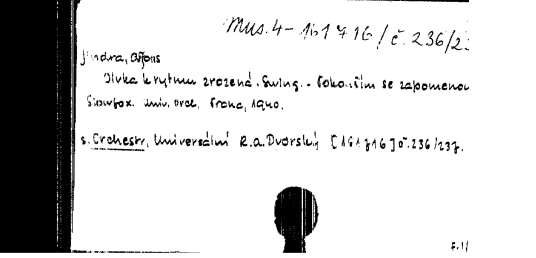 Mus. 4 - 161716/č. 236/23
Jindra, Alfons
Dívka k rytmu zrozená. Swing. - Pokouším se zapomenou
Slowfox. Univ. orch. Praha, 1940.
s. Orchestr, Universální R.A. Dvorský [161716] č. 236/237.
F. 1/